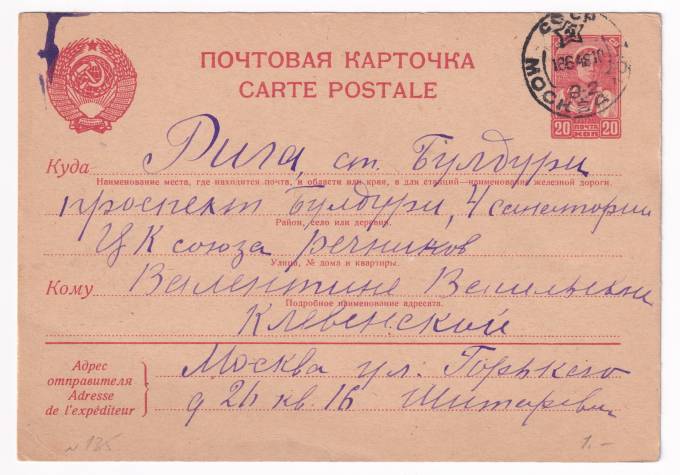 ПОЧТОВАЯ КАРТОЧКА
CARTE POSTALE
СССР
МОСКВА
20 ПОЧТА 20
КОП
Куда Рига, ст. Булдури
Наименование места, где находится почта, и области или края, а для станций—наименование железной дороги.
проспект Булдури, 4 санатории
Район, село или деревня.
ЦК союза речников
Улица, № дома и квартиры.
Кому Валентине Васильевне
Подробное наименование адресата.
Клевенской
Адрес
отправителя
Adresse
de l'expéditeur
Москва ул. Горького
д 26 кв. 16
N 125
1.–